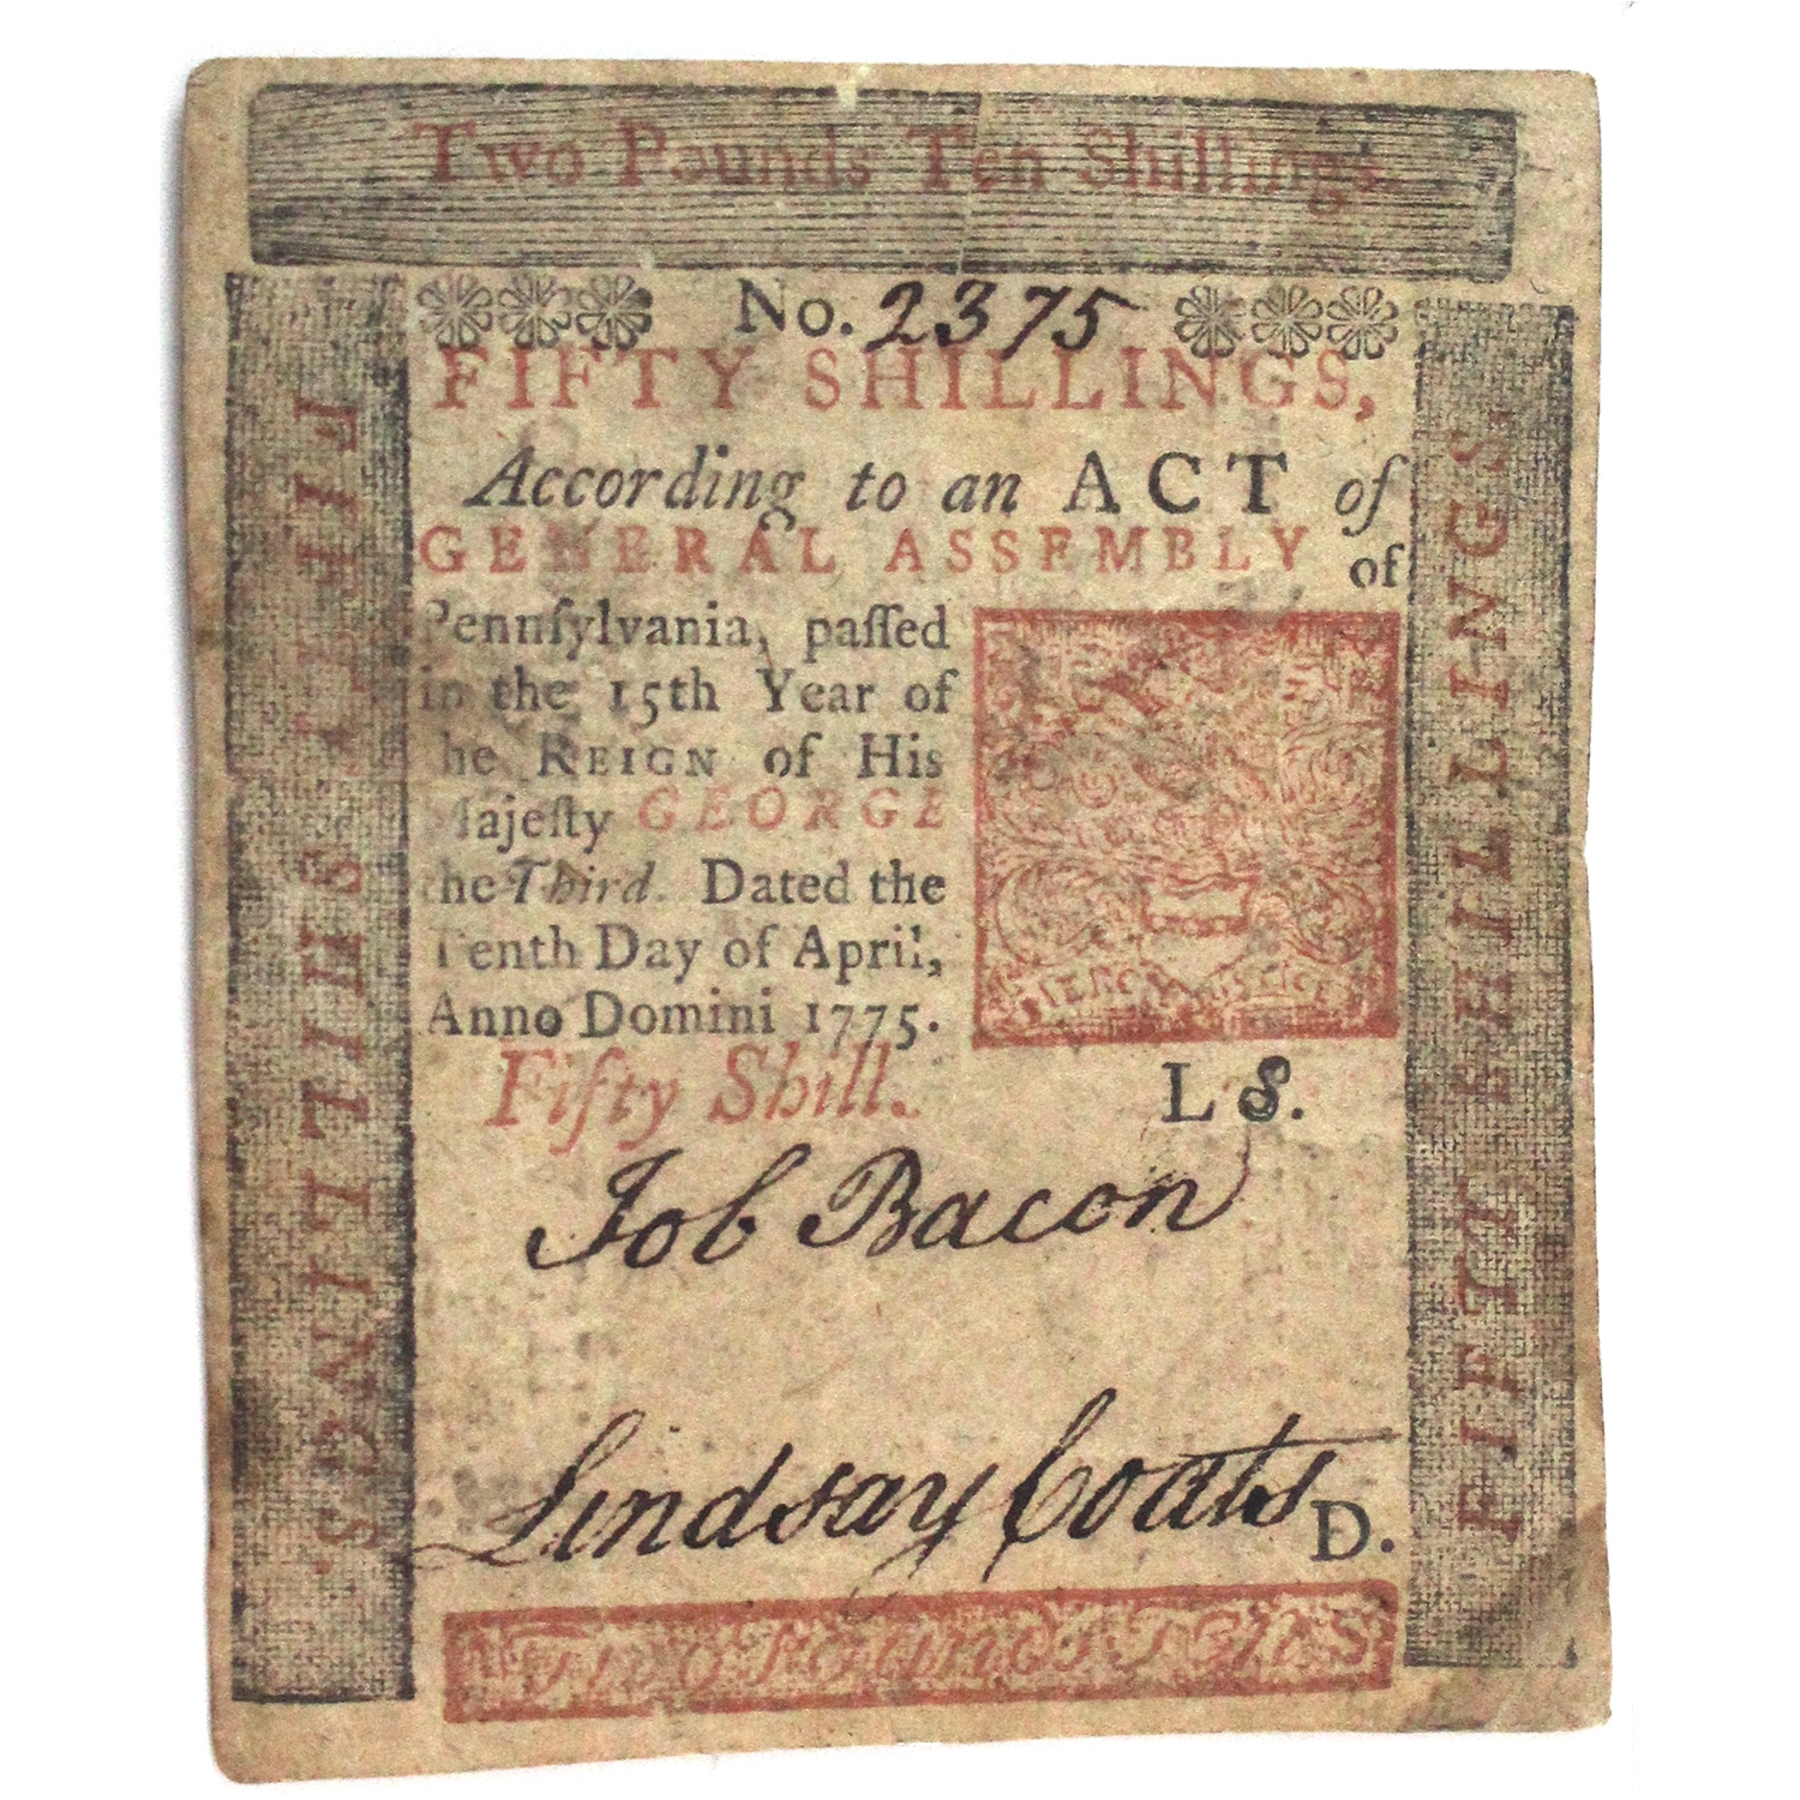 Two Pounds Ten Shillings.
No. 2375
FIFTY SHILLINGS,
According to an ACT of
GENERAL ASSEMBLY of
Pennſylvania, paſſed
in the 15th Year of
he REIGN of His
ajeſty GEORGE
he Third. Dated the
Tenth Day of April,
Anno Domini 1775.
Fifty Shill.
L S.
Job Bacon
Lindsay Coats
D.
FIFTY SHILLINGS.
FIFTY SHILLINGS
MERCY JUSTICE